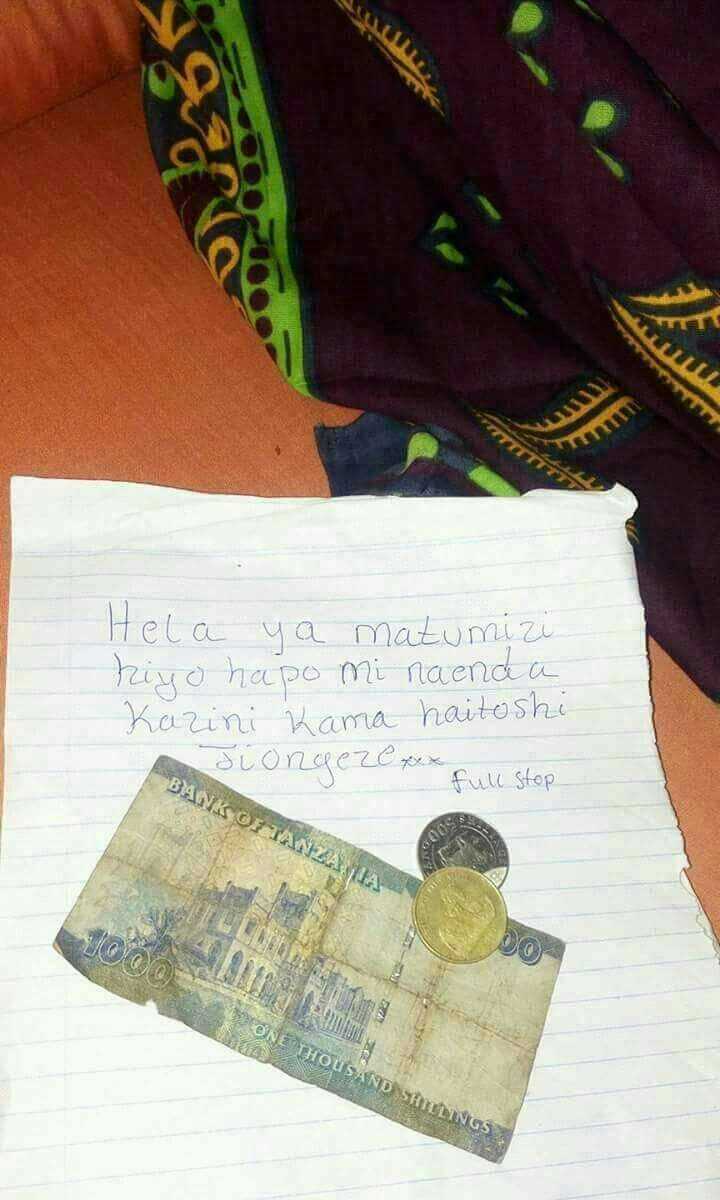 Hela ya matumizi
hiyo hapo mi naenda
Kazini kama haitoshi
Jiongeze xxx
full stop
BANK OF TANZANIA
1000
00
ONE THOUSAND SHILLINGS
500